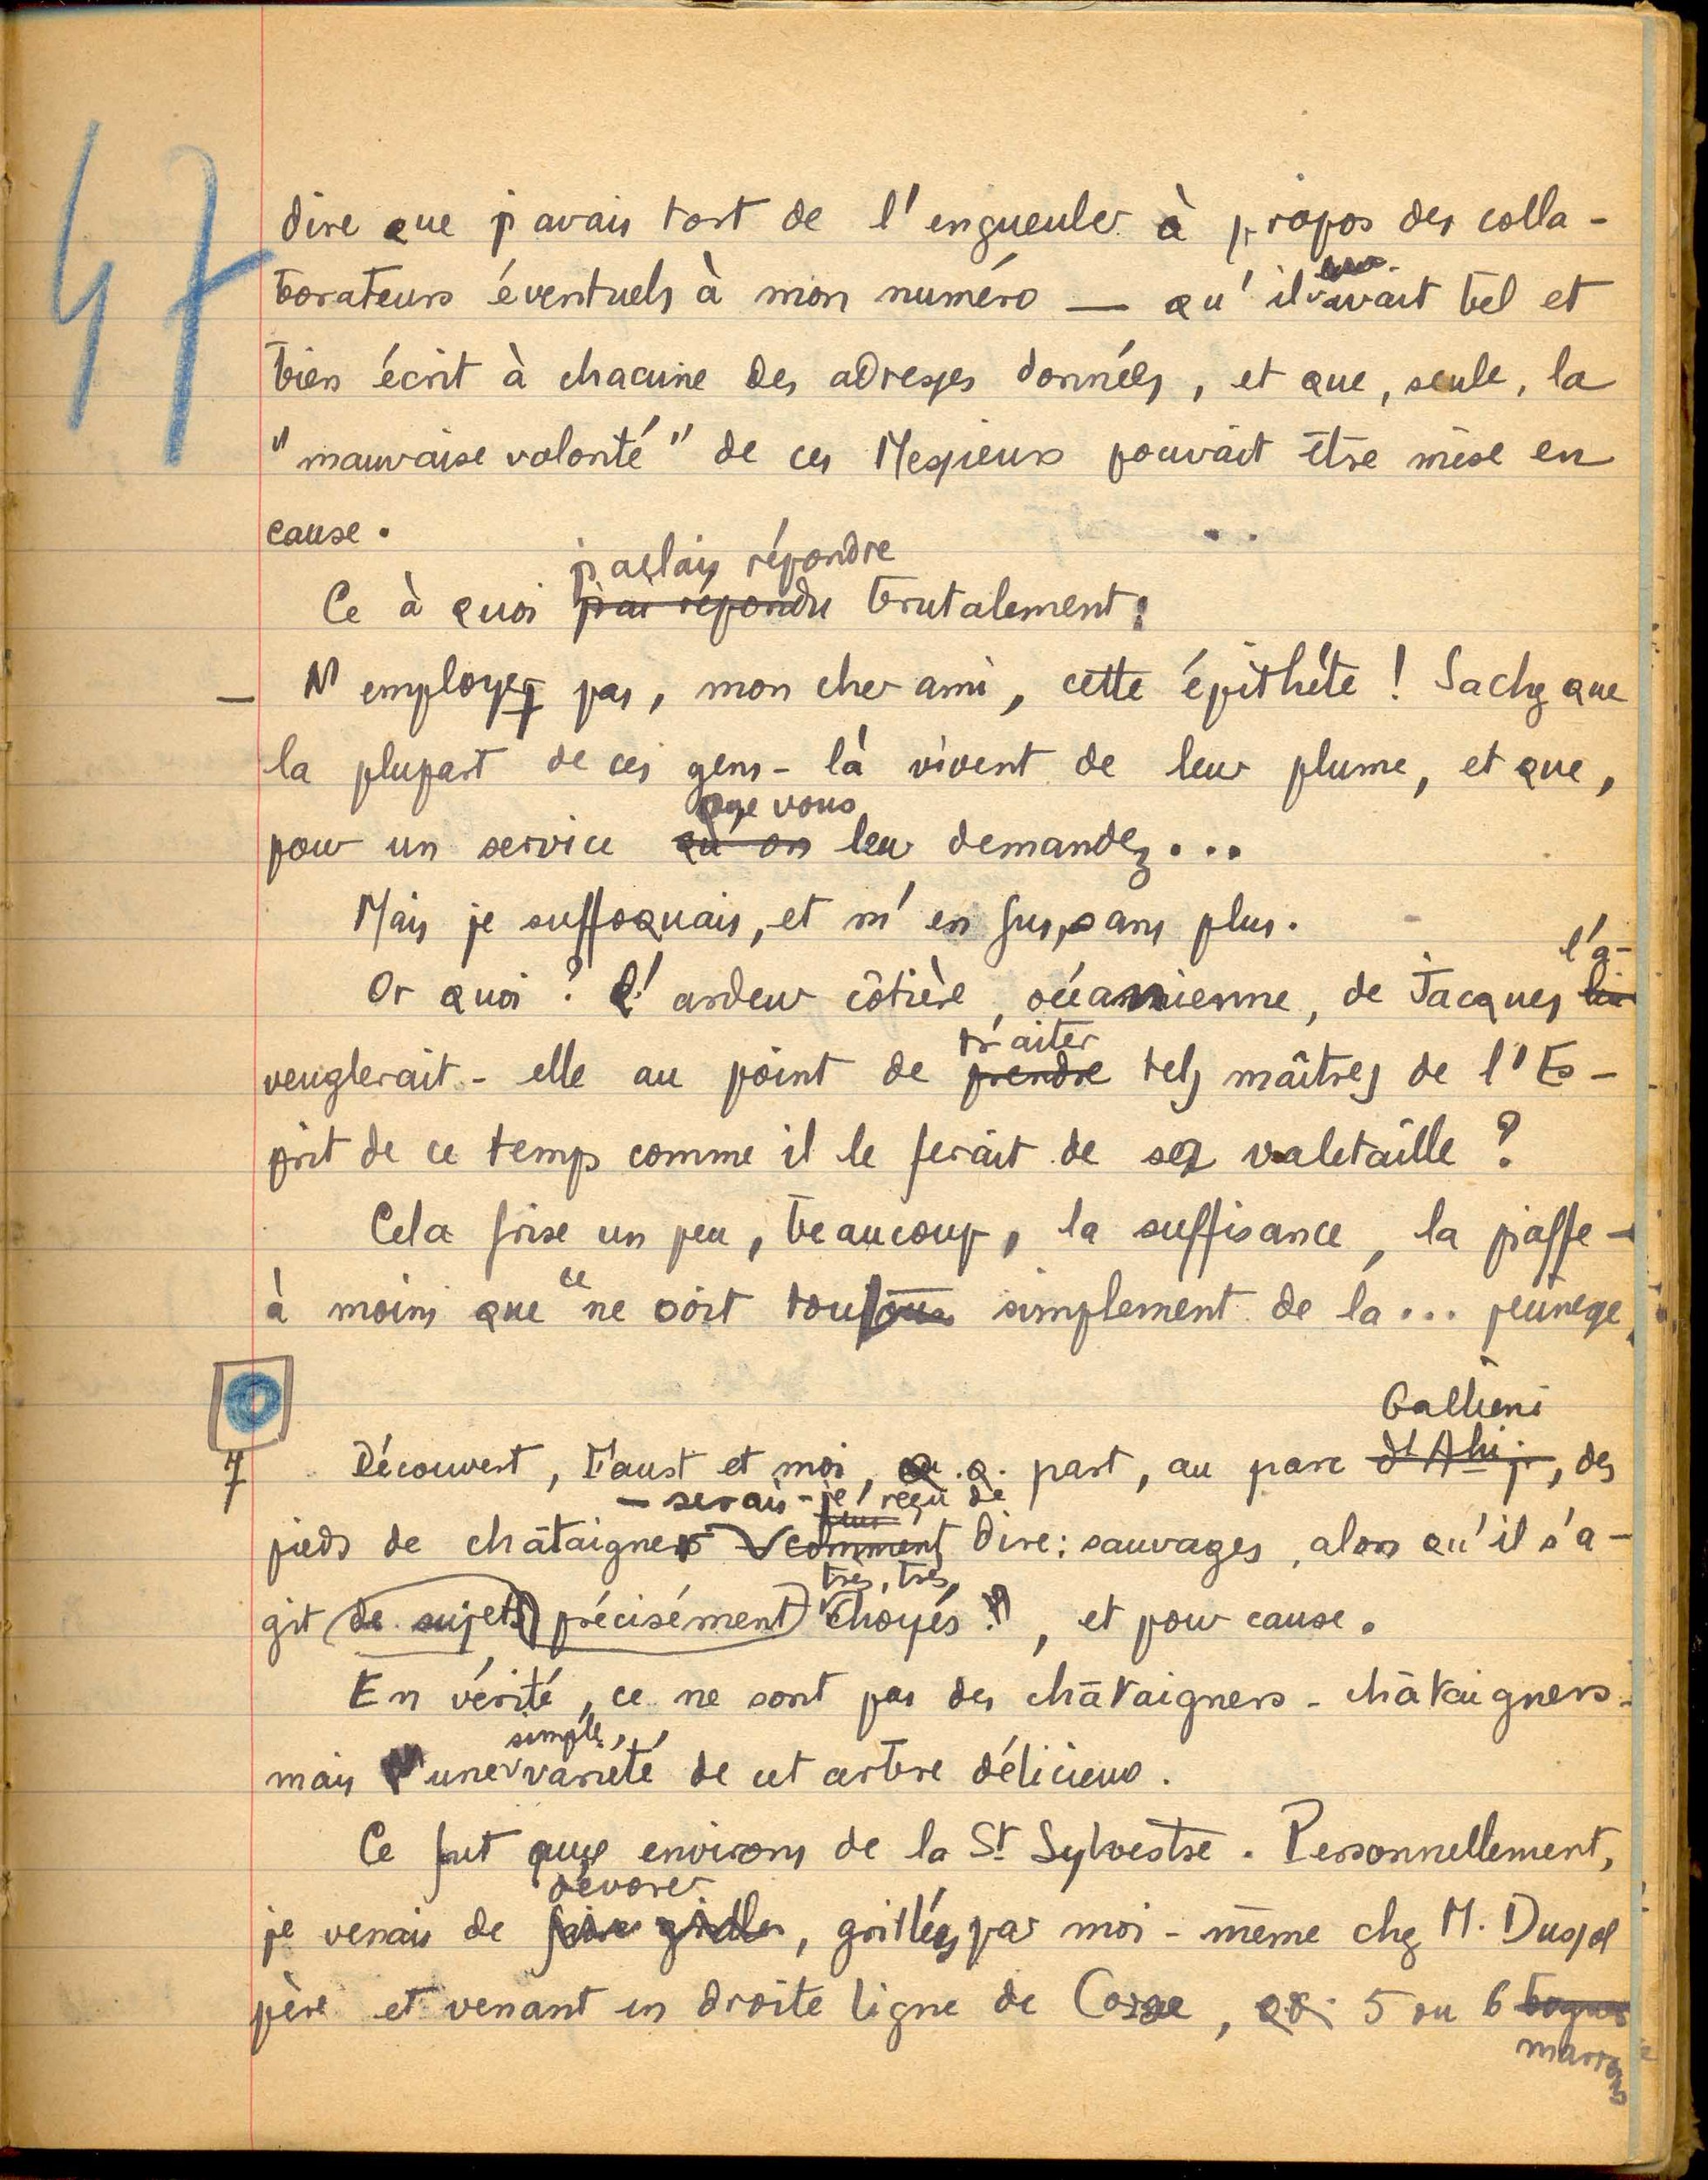 47
dire que j'avais tort de l'engueuler à propos des colla-
borateurs éventuels à mon numéro — qu'il avait bel et
bien écrit à chacune des adresses données, et que, seule, la
"mauvaise volonté" de ces Messieurs pouvait être mise en
cause.
j'allais répondre
Ce à quoi j'ai répondu brutalement :
— N'employez pas, mon cher ami, cette épithète ! Sachez que
la plupart de ces gens-là vivent de leur plume, et que,
que vous
pour un service qu'on leur demandez...
Mais je suffoquais, et m'en fus, sans plus.
l'a-
Or quoi ? L'ardeur côtière, océanienne, de Jacques
traiter
veuglerait-elle au point de prendre tels maîtres de l'Es-
prit de ce temps comme il le ferait de sa valetaille ?
Cela frise un peu, beaucoup, la suffisance, la piaffe —
ce
à moins que ne soit tout simplement de la... jeunesse.
Gallieni
7 Découvert, Faust et moi, qq. part, au parc d'Ahip, des
— serais-je reçu de
pieds de châtaigner comment dire : sauvages, alors qu'il s'a-
très, très,
git de sujets précisément "choyés", et pour cause.
En vérité, ce ne sont pas des châtaigners-châtaigners-
simple
mais une variété de cet arbre délicieux.
Ce fut aux environs de la St Sylvestre. Personnellement,
dévorer
je venais de faire griller, grillées par moi-même chez M. Dussol
père et venant en droite ligne de Corse, 5 ou 6 bogues
marrons